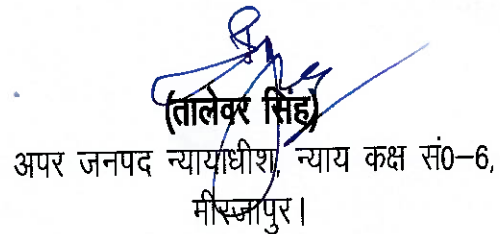 (तालेवर सिंह)
अपर जनपद न्यायाधीश, न्याय कक्ष सं0-6,
मीरजापुर।